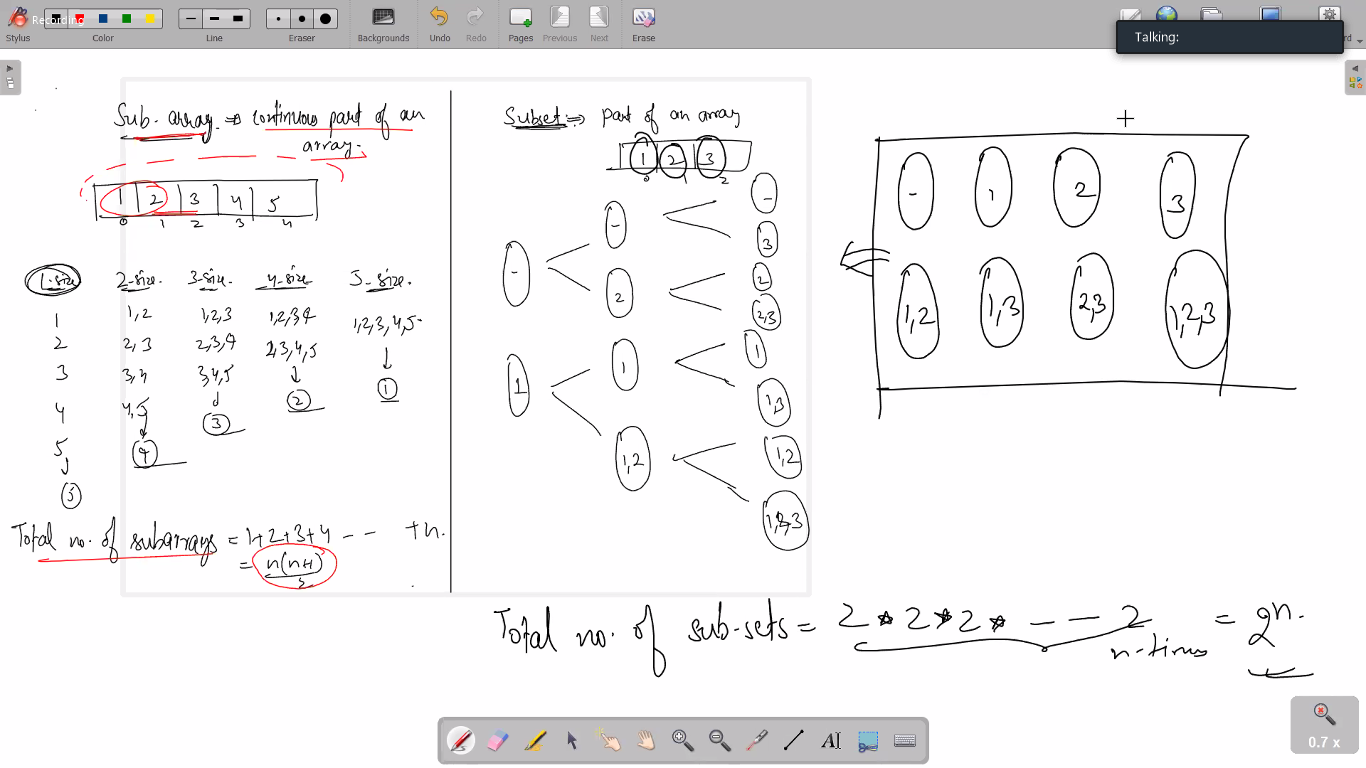 Recording
Stylus Color Line Eraser Backgrounds Undo Redo Pages Previous Next Erase
Talking:
Sub-array ⇒ continuous part of an
array.
1 2 3 4 5
0 1 2 3 4
1-size 2-size. 3-size. 4-size 5-size.
1 1,2 1,2,3 1,2,3,4 1,2,3,4,5
2 2,3 2,3,4 2,3,4,5
3 3,4 3,4,5
4 4,5
5
5 4 3 2 1
Total no. of subarrays = 1+2+3+4 -- +n.
= n(n+1)
2
Subset ⇒ part of an array
1 2 3
0 1 2
- - -
3
2 2
2,3
1 1 1
1,3
1,2 1,2
1,2,3
- 1 2 3
1,2 1,3 2,3 1,2,3
Total no. of sub-sets = 2*2*2* -- 2 = 2^n.
n-times
0.7 x